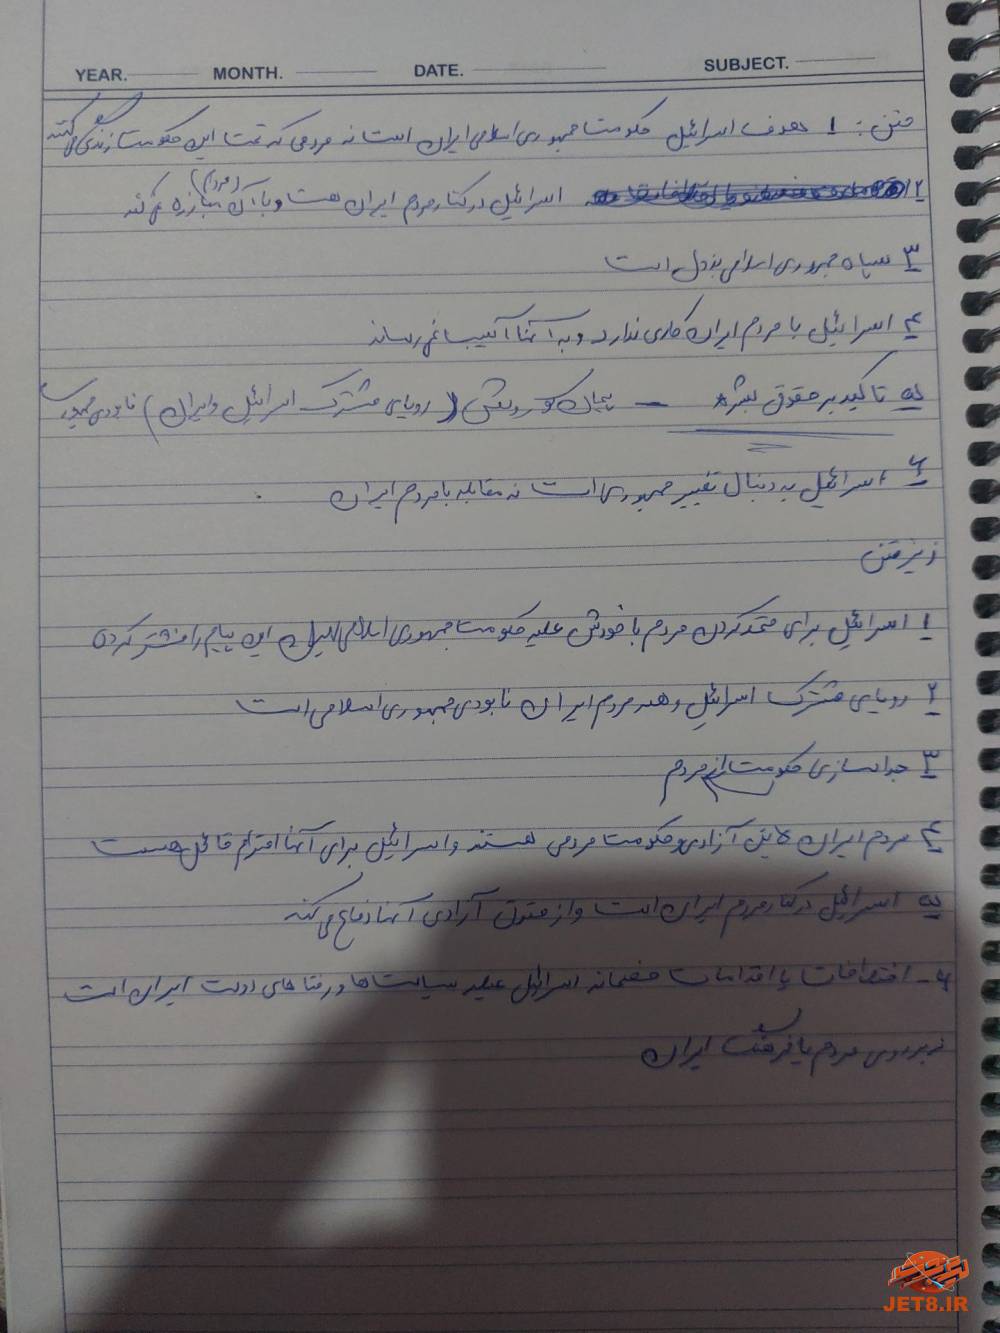 YEAR. MONTH. DATE. SUBJECT.
متن: ۱ هدف اسرائیل حکومت جمهوری اسلامی ایران است نه مردمی که تحت این حکومت زندگی می کنند
۲ اسرائیل در کنار مردم ایران هست و با آن (مردم) مبارزه نمی کند
۳ سپاه جمهوری اسلامی بزدل است
۴ اسرائیل با مردم ایران کاری ندارد و به آنها آسیب نمی رساند
۵ تاکید بر حقوق بشر — پیمان کوروش (رویای مشترک اسرائیل و ایران) نابودی جمهوری
۶ اسرائیل به دنبال تغییر جمهوری است نه مقابله با مردم ایران
زیر متن
۱ اسرائیل برای متحد کردن مردم با خودش علیه حکومت جمهوری اسلامی این پیام را منتشر کرده
۲ رویای مشترک اسرائیل و هم مردم ایران نابودی جمهوری اسلامی است
۳ جداسازی حکومت از مردم
۴ مردم ایران لایق آزادی و حکومت مردمی هستند و اسرائیل برای آنها احترام قائل هست
۵ اسرائیل در کنار مردم ایران است و از حقوق آزادی آنها دفاع می کند
۶- اعتراضات یا اقدامات خصمانه اسرائیل علیه سیاست ها و رفتارهای دولت ایران است
نه بر روی مردم یا فرهنگ ایران
JET8.IR